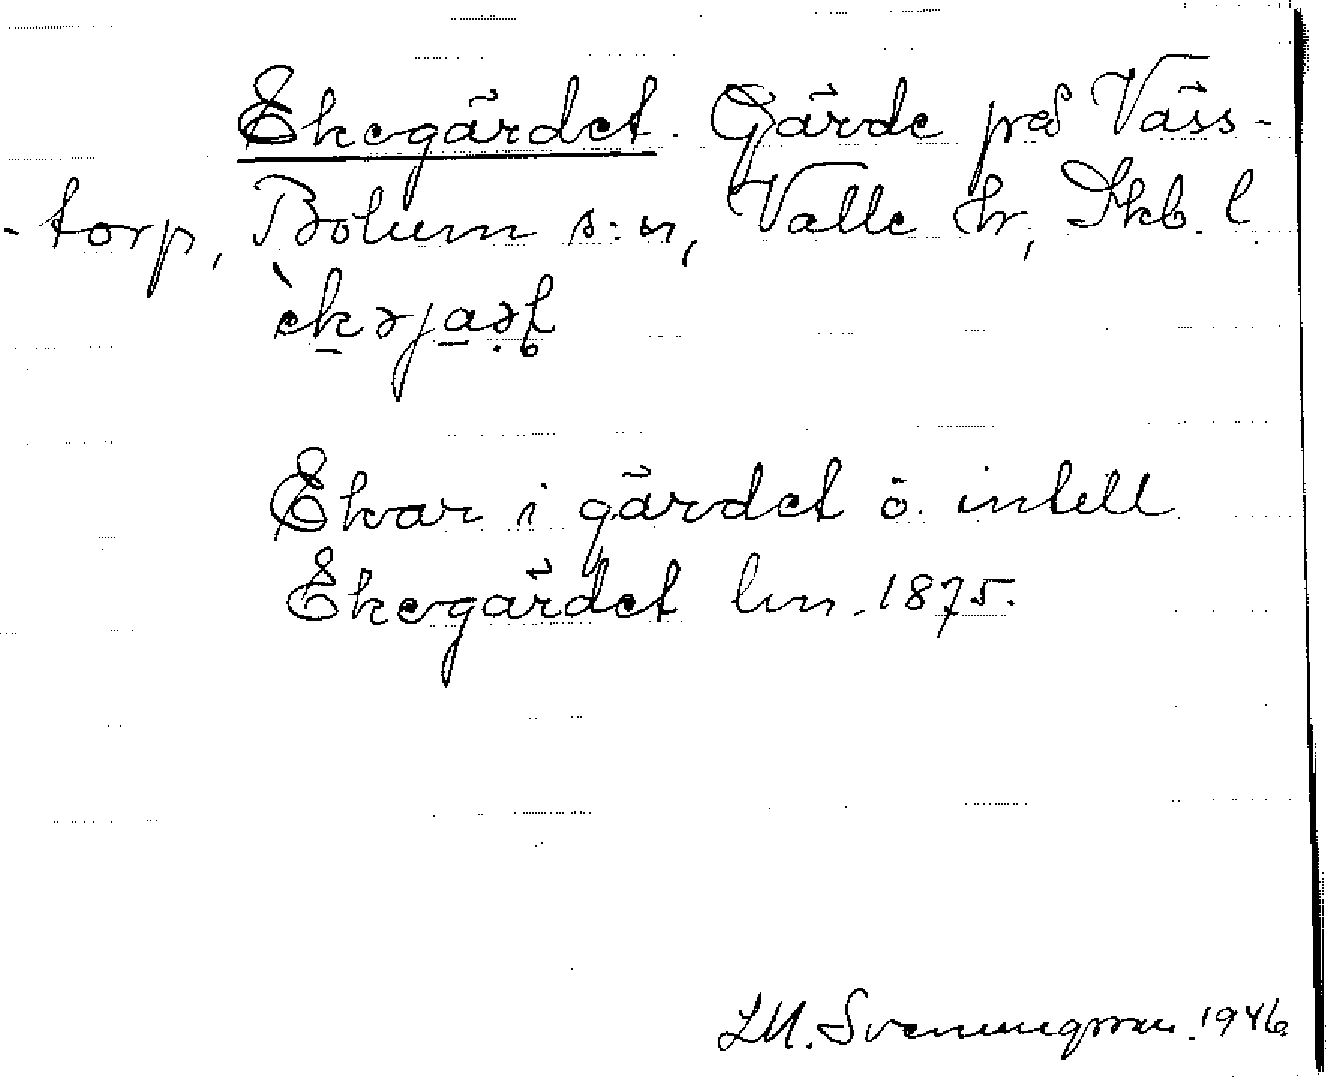 Ekegärdet. Gärde på Väss-
-torp, Bolum s:n, Valle hr, Skb. l.
èkəjaət
Ekar i gärdet ö. intill
Ekegärdet lm. 1875.
Svenungsson. 1946